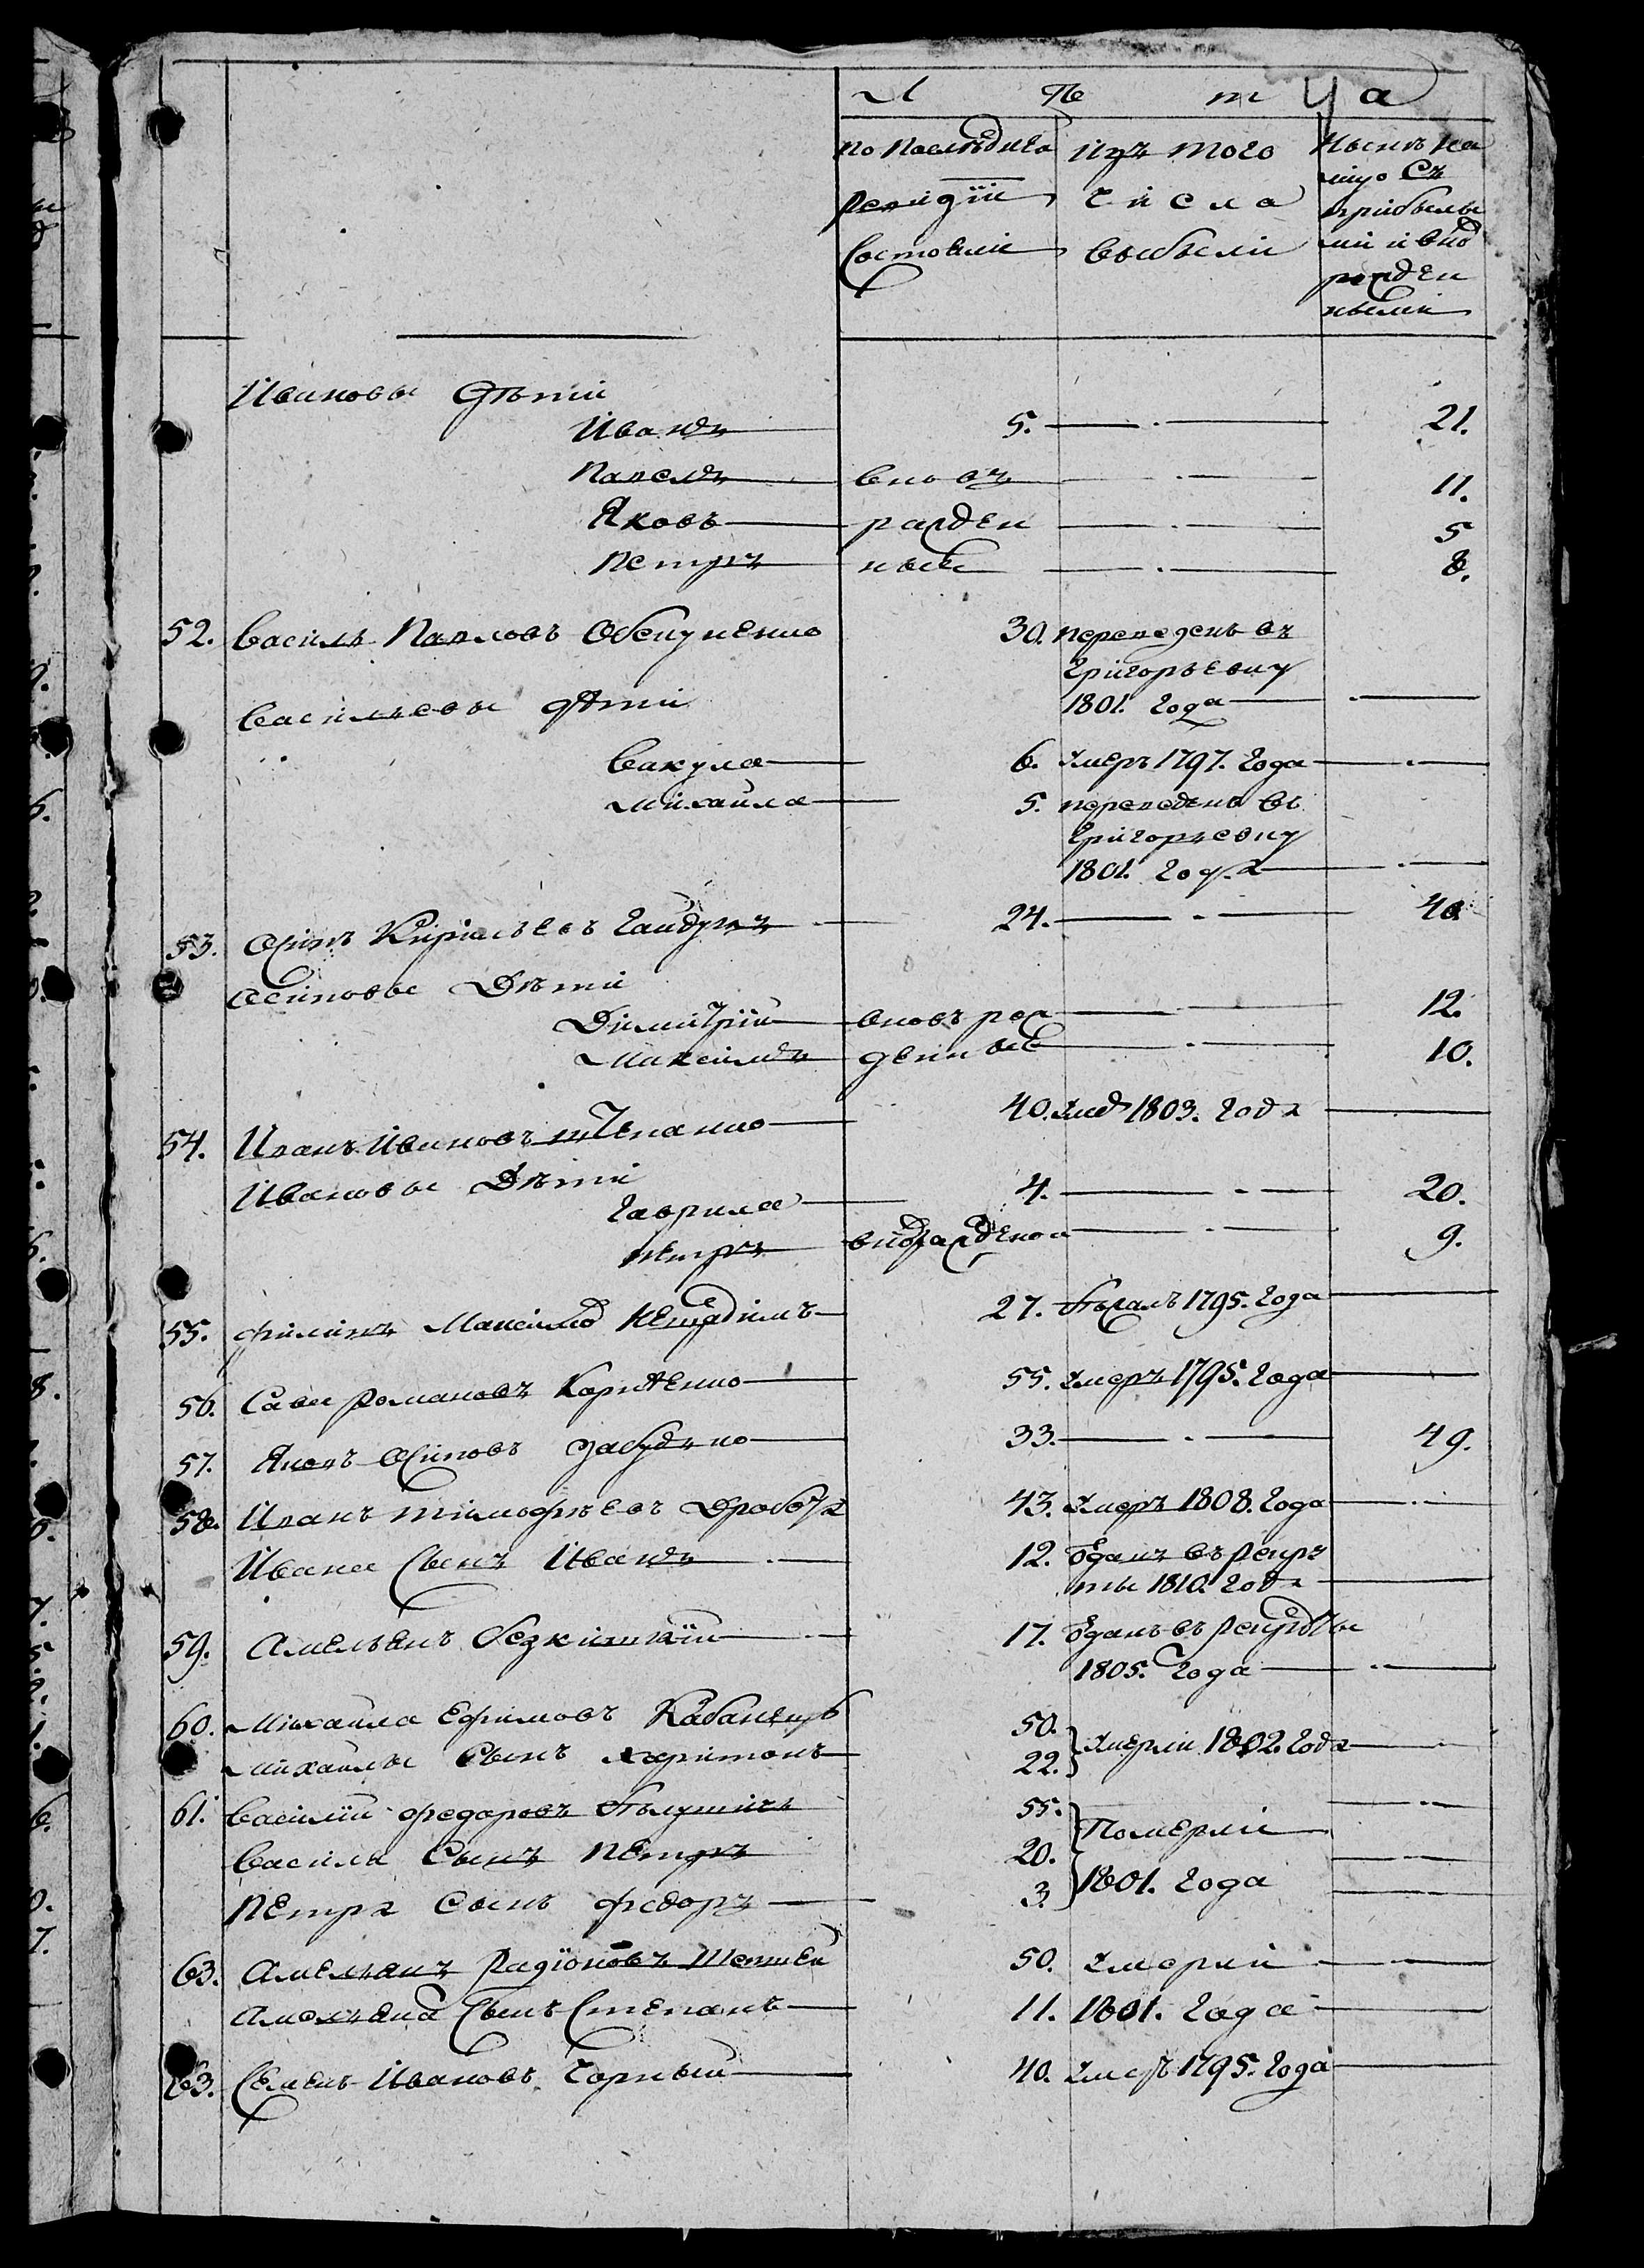 Л ѣ т ц а
По Последней ревизіи Состояли
Изъ того числа выбыли
Нынѣ на лицо Съ прибылыми и внов рожденными
Ивановы дѣти
Иванъ 5. 21.
Павелъ вновь 11.
Яковъ рожден 5
Петръ ные 8.
52. Василь Павловъ 30. переведенъ въ
Григорьевку
Васильевы дѣти 1801. года
Вакула 6. умеръ 1797. года
Михайла 5. переведенъ въ
Григорьевку
1801. года
53. Осипъ Кириловъ Гайдукъ 24. 40
Осиповы Дѣти
Димитрій вновь рож 12.
Максимъ денные 10.
54. Иванъ Ивановъ 40. умер 1803. года
Ивановы Дѣти
Гаврила 4. 20.
Петръ 9.
55. Филипъ Максимов 27. бѣжалъ 1795. года
56. Сава Романовъ 55. умеръ 1795. года
57. Яковъ Осиповъ 33. 49.
58. Иванъ Тимофѣевъ Дробот 43. умеръ 1808. года
Ивана Сынъ Иванъ 12. отданъ въ рекру
ты 1810. года
59. Амельянъ 17. отданъ въ рекруты
1805. года
60. Михайла Ефимовъ Кабанецъ 50.
умерли 1802. года
Михайлы Сынъ Харитонъ 22.
61. Василій Федоровъ 55.
Померли
Василя Сынъ Петръ 20.
1801. года
Петра Сынъ Федоръ 3.
63. Амельянъ Радіоновъ 50. умерли
Амельяна Сынъ Степанъ 11. 1801. года
63. Семенъ Ивановъ Чорный 40. умеръ 1795. года